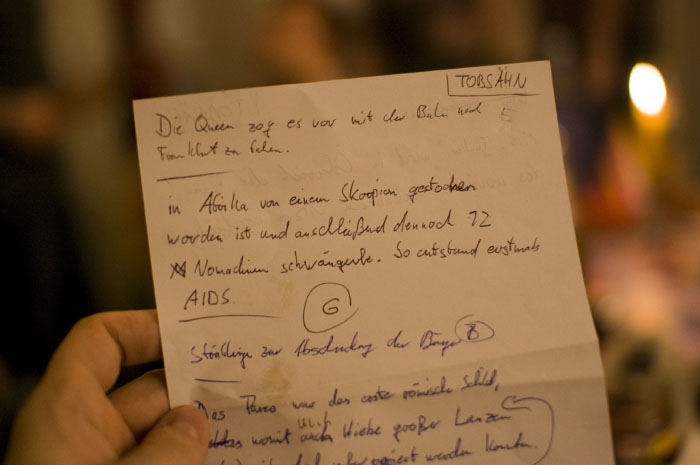 TOBSÄHN
Die Queen zog es vor mit der Bahn nach
Frankfurt zu fahren.
in Afrika von einem Skorpion gestochen
worden ist und anschließend dennoch 12
Nomadinnen schwängerte. So entstand erstmals
AIDS.
G
Sträflinge zur Abschreckung der Bürger 8
Das Parco war das erste römische Schild,
womit auch Hiebe großer Lanzen
werden konnten.